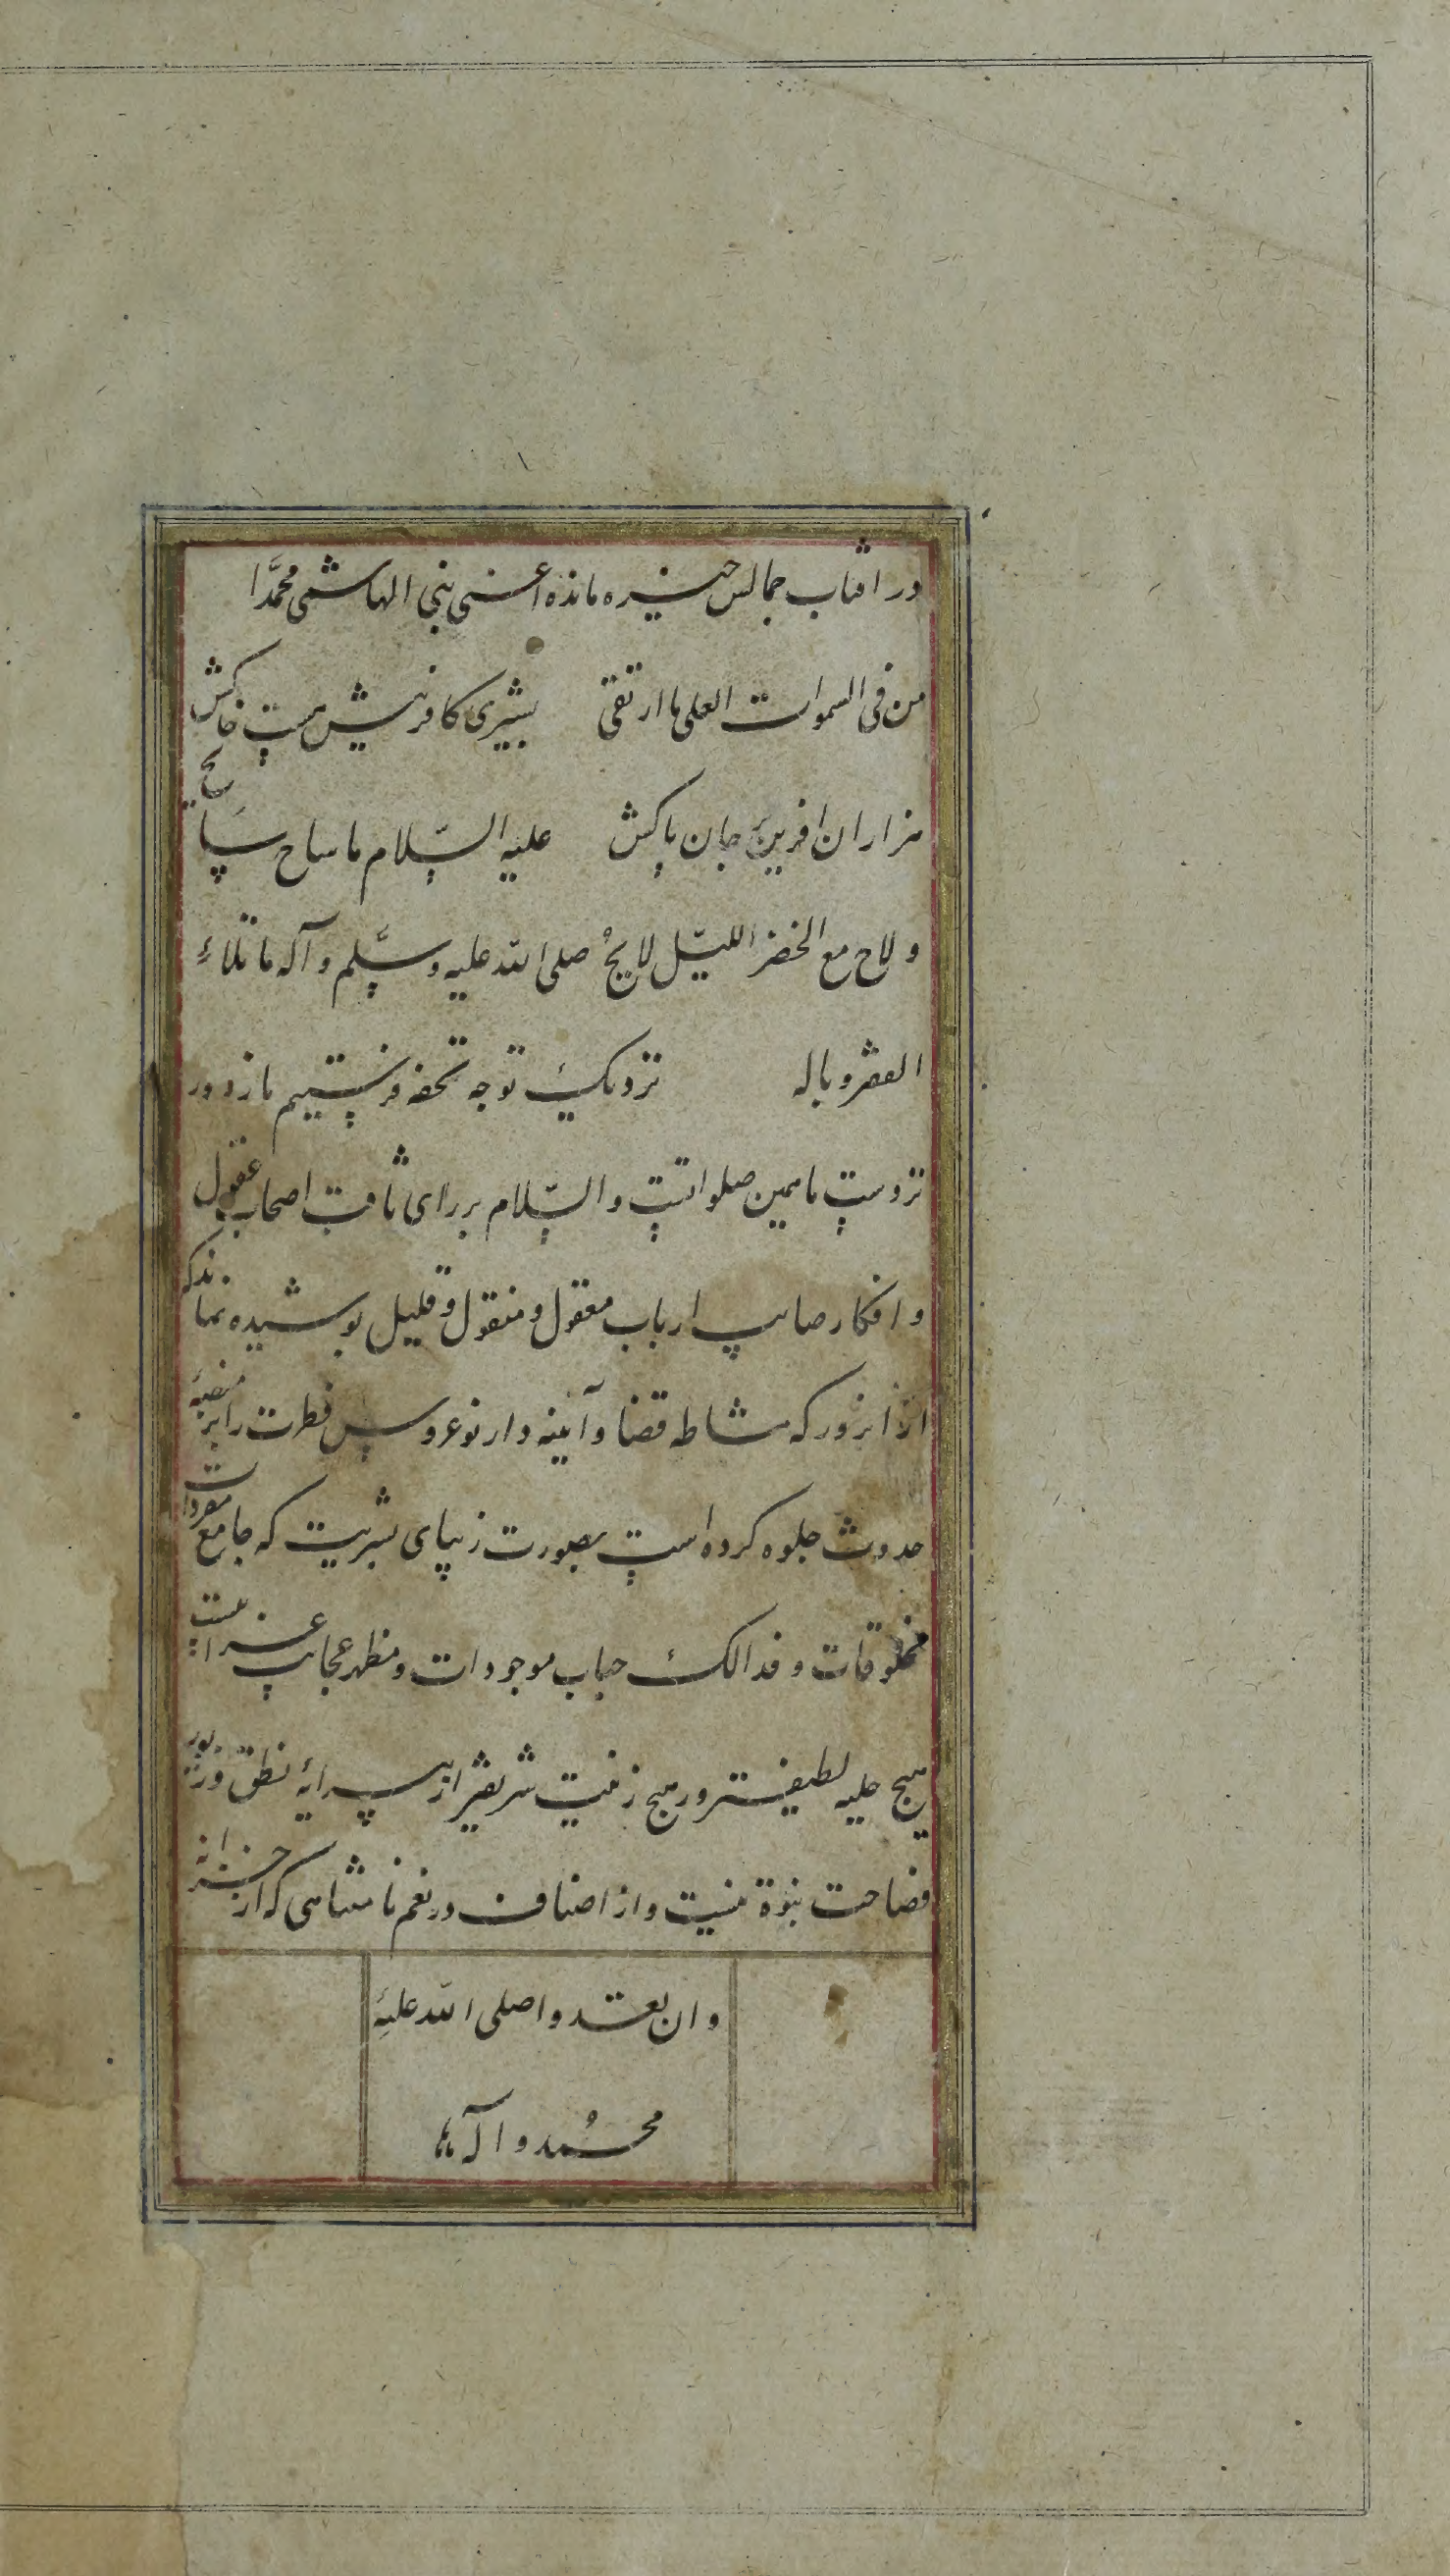 در افتاب جمالش خیره مانده اعنی نبی الهاشمی محمّدا
من فی السموات العلی ما ارتقی بشیری کافرینش هست خاکش
هزاران افرین بر جان پاکش علیه السّلام ما ساح سیاح
و لاح مع الخضر اللیّل لایحُ صلی الله علیه وسلّم و آله ما تلاء
العصر و باله نزدیک تو جه تحفه فرستیم ما ز دور
نزدست ما همین صلواتست والسّلام بر رای ثاقب اصحاب عقول
و افکار صائب ارباب معقول و منقول و قلیل پوشیده نماند که
از انروز که مشاطه قضا و آئینه دار نوعروس فطرت را بر منصّهٔ
حدوث جلوه کرده است بصورت زیبای بشریت که جامع مفردات
مخلوقات و فذالک حساب موجودات و مظهر عجایب غرایبست
هیچ حلیه لطیفتر و هیچ زینت شریفتر از پیرایهٔ نطق و زیور
فصاحت نبوة نیست و از اصناف در نعم نامتناهی که از خزانه
وان تعتدوا صلی الله علیه
محمُد و آله